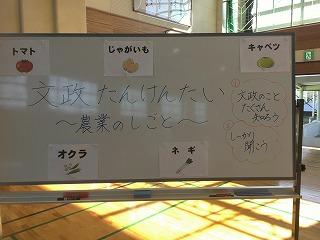 トマト
じゃがいも
キャベツ
文政たんけんたい
~農業のしごと~
①
文政のこと
たくさん
知ろう
②
しっかり
聞こう
オクラ
ネギ